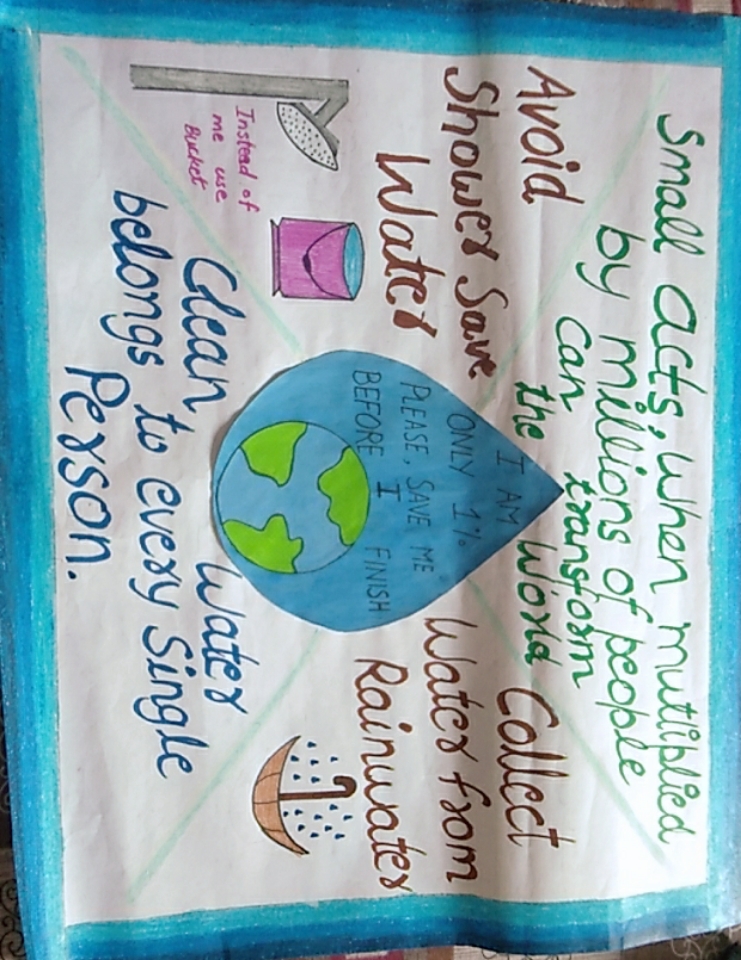 Small acts, when mutliplied
by millions of people
can transform
the World
Avoid
Shower Save
Water
Instead of
me use
Bucket
I AM
ONLY 1%
PLEASE, SAVE ME
BEFORE I FINISH
Collect
Water from
Rainwater
Clean Water
belongs to every Single
Person.